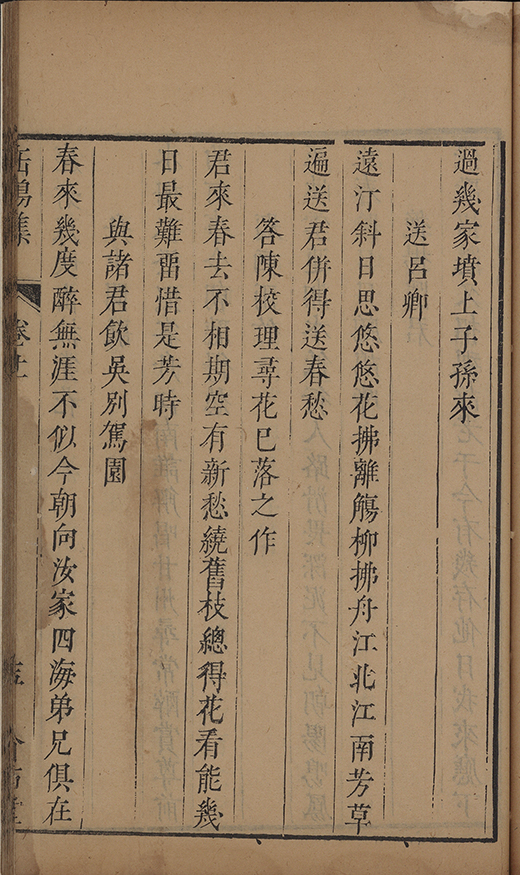 過幾家墳上子孫來
送呂卿
遠汀斜日思悠悠花拂離觴柳拂舟江北江南芳草
遍送君併得送春愁
答陳校理尋花已落之作
君來春去不相期空有新愁繞舊枝總得花看能幾
日最難畱惜是芳時
與諸君飲吳別駕園
春來幾度醉無涯不似今朝向汝家四海弟兄俱在
卷十